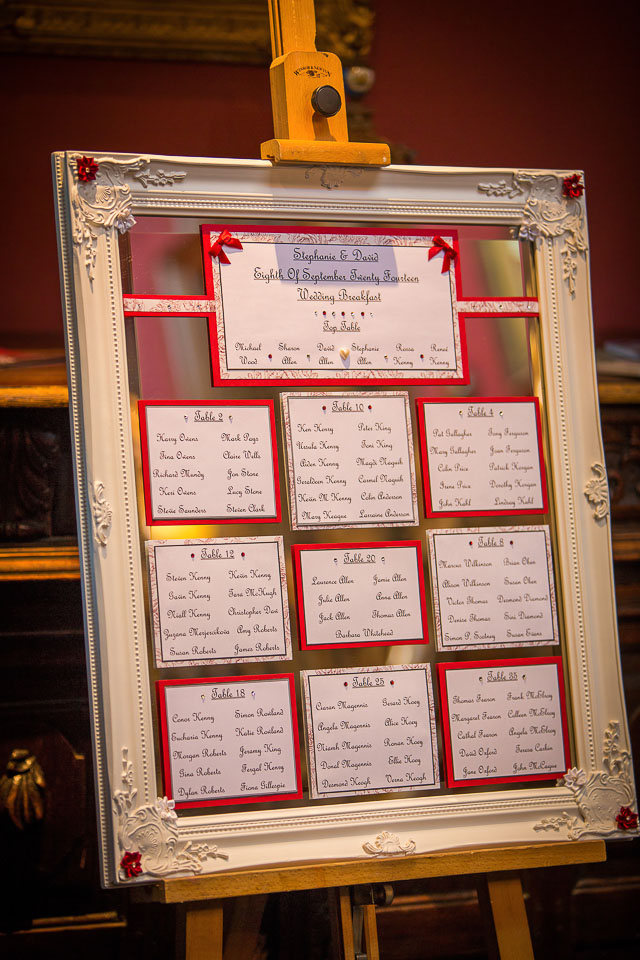 WINSOR & NEWTON
Stephanie & David
Eighth Of September Twenty Fourteen
Wedding Breakfast
Top Table
Michael Sharon David Stephanie Rossa Reneé
Wood Allen Allen Allen Kenny Kenny
Table 2
Harry Owens Mark Page
Tina Owens Claire Wells
Richard Mundy Jon Stone
Keri Owens Lucy Stone
Stevie Saunders Steven Clark
Table 10
Ken Henry Peter King
Ursula Henry Toni King
Aiden Kenny Magdi Naguib
Geraldeen Kenny Carmel Naguib
Kevin M Kenny Colin Anderson
Mary Keague Lorraine Anderson
Table 4
Pat Gallagher Tony Ferguson
Mary Gallagher Joan Ferguson
Colin Price Patrick Horgan
Irene Price Dorothy Horgan
John Kuhl Lindsay Kuhl
Table 12
Steven Kenny Kevin Kenny
Gavin Kenny Tara McHugh
Niall Kenny Christopher Davi
Zuzana Amy Roberts
Susan Roberts James Roberts
Table 20
Laurence Allen Jamie Allen
Julie Allen Anna Allen
Jack Allen Thomas Allen
Barbara Whitehead
Table 8
Marcus Wilkinson Brian Oken
Alison Wilkinson Susan Oken
Victor Thomas Desmond Diamond
Denise Thomas Evie Diamond
Simon P. Susan Evans
Table 18
Conor Kenny Simon Rowland
Eucharia Kenny Katie Rowland
Morgan Roberts Jeramy King
Gina Roberts Fergal Henry
Dylan Roberts Fiona Gillespie
Table 25
Ciaran Magennis Gerard Hoey
Angela Magennis Alice Hoey
Niamh Magennis Ronan Hoey
Donal Magennis Ellie Hoey
Desmond Keogh Verna Keogh
Table 35
Thomas Fearon Frank McElroy
Margaret Fearon Colleen McElroy
Cathal Fearon Angela McElroy
David Oxford Teresa Caskin
Jane Oxford John McCague